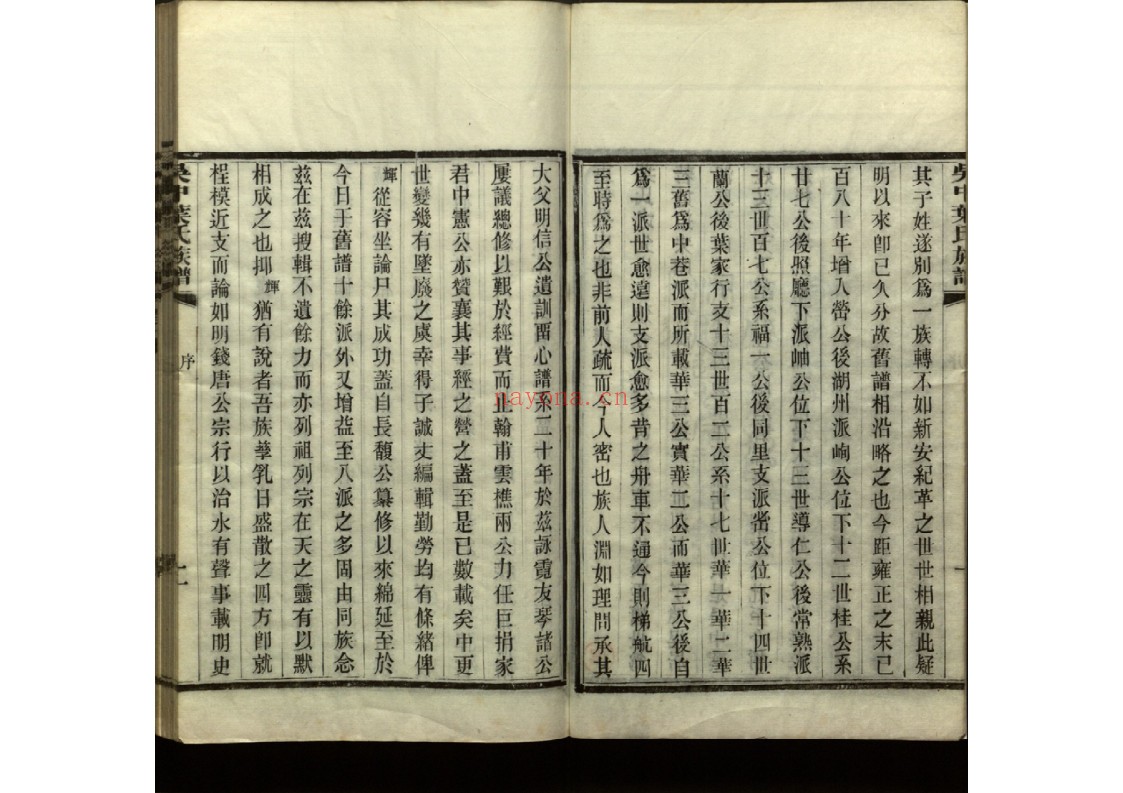 吳中葉氏族譜
其子姓遂別爲一族轉不如新安紀革之世世相親此疑
明以來卽已久分故舊譜相沿略之也今距雍正之末已
百八十年增入䓨公後湖州派峋公位下十二世桂公系
廿七公後照廳下派岫公位下十三世導仁公後常熟派
十三世百七公系福一公後同里支派嵤公位下十四世
蘭公後葉家行支十三世百二公系十七世華一華二華
三舊爲中巷派而所載華三公實華二公而華三公後自
爲一派世愈遠則支派愈多昔之舟車不通今則梯航四
至時爲之也非前人疏而今人密也族人淵如理問承其
大父明信公遺訓畱心譜系二十年於茲詠霓友琴諸公
屢議總修以艱於經費而止翰甫雲樵兩公力任巨捐家
君中憲公亦贊襄其事經之營之蓋至是已數載矣中更
世變幾有墜廢之虞幸得子誠丈編輯勤勞均有條緒俾
輝從容坐論尸其成功蓋自長馥公纂修以來綿延至於
今日于舊譜十餘派外又增益至八派之多固由同族念
茲在茲搜輯不遺餘力而亦列祖列宗在天之靈有以默
相成之也抑輝猶有說者吾族孳乳日盛散之四方卽就
桯模近支而論如明錢唐公宗行以治水有聲事載明史
吳中葉氏族譜
序
nayona.cn